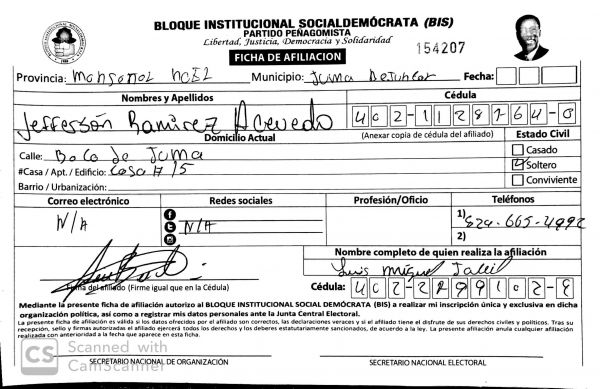 BLOQUE INSTITUCIONAL SOCIALDEMÓCRATA (BIS)
PARTIDO PEÑAGOMISTA
Libertad, Justicia, Democracia y Solidaridad
FICHA DE AFILIACION
154207
Provincia: Monseñol noel Municipio: Juma Bejucal Fecha:
Nombres y Apellidos Cédula
Jefferson Ramirez Acevedo 402-1128764-0
Domicilio Actual (Anexar copia de cédula del afiliado) Estado Civil
Calle: Boca de Juma
Casado
#Casa / Apt. / Edificio: Casa # 5
Soltero
Barrio / Urbanización:
Conviviente
Correo electrónico Redes sociales Profesión/Oficio Teléfonos
N/A N/A 1) 829-665-4992
2)
Firma del afiliado (Firme igual que en la Cédula)
Nombre completo de quien realiza la afiliación
Luis Miguel
Cédula: 402-2299102-8
Mediante la presente ficha de afiliación autorizo al BLOQUE INSTITUCIONAL SOCIAL DEMÓCRATA (BIS) a realizar mi inscripción única y exclusiva en dicha
organización política, así como a registrar mis datos personales ante la Junta Central Electoral.
La presente ficha de afiliación es válida si los datos ofrecidos por el afiliado son correctos, las declaraciones veraces y si el afiliado tiene el disfrute de sus derechos civiles y políticos. Tras su
recepción, sello y firmas autorizadas el afiliado ejercerá todos los derechos y los deberes estatutariamente sancionados, de acuerdo a la ley. La presente afiliación anula cualquier afiliación
realizada con anterioridad a la fecha que aparece en esta ficha.
CS Scanned with
CamScanner
SECRETARIO NACIONAL DE ORGANIZACIÓN SECRETARIO NACIONAL ELECTORAL